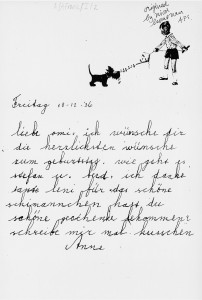 Freitag 18-12-36
liebe omi, ich wünsche dir
die herzlichsten wünsche
zum geburtstag. wie geht es
stefan u. ich danke
tante leni für das schöne
hast du
schöne geschenke bekommen
schreibe mir mal. küsschen
Anne